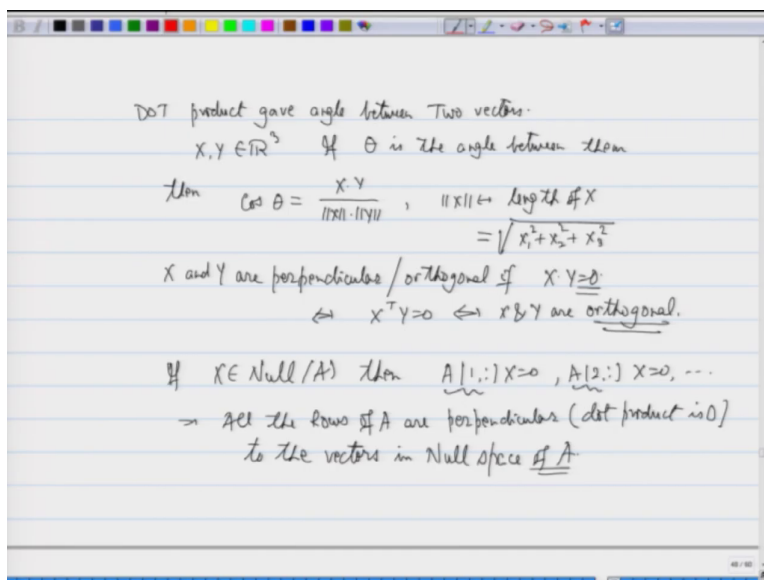 DOT product gave angle between Two vectors.
X, Y ∈ ℝ³ If θ is the angle between them
then Cos θ = X·Y / ||X||·||Y|| , ||X|| ↔ length of X
= √x₁² + x₂² + x₃²
X and Y are perpendicular / orthogonal if X·Y=0
⇔ XᵀY=0 ⇔ X & Y are orthogonal.
If X ∈ Null(A) then A[1,:] X=0 , A[2,:] X=0, ...
→ All the Rows of A are perpendicular (dot product is 0)
to the vectors in Null space of A.
48/60